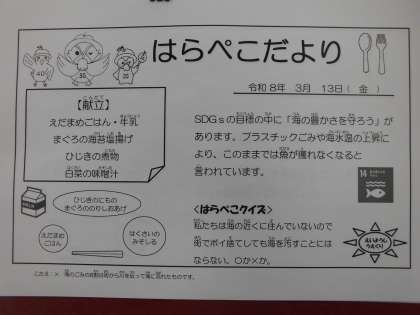 はらぺこだより
令和8年 3月 13日( 金 )
【献立】
えだまめごはん・牛乳
まぐろの海苔塩揚げ
ひじきの煮物
白菜の味噌汁
SDGsの目標の中に「海の豊かさを守ろう」が
あります。プラスチックごみや海水温の上昇に
より、このままでは魚が獲れなくなると
言われています。
14
ひじきのにもの
まぐろののりしおあげ
えだまめ
ごはん
はくさいの
みそしる
<はらぺこクイズ>
私たちは海の近くに住んでいないので
街でポイ捨てしても海を汚すことには
ならない。〇か×か。
こたえ:×